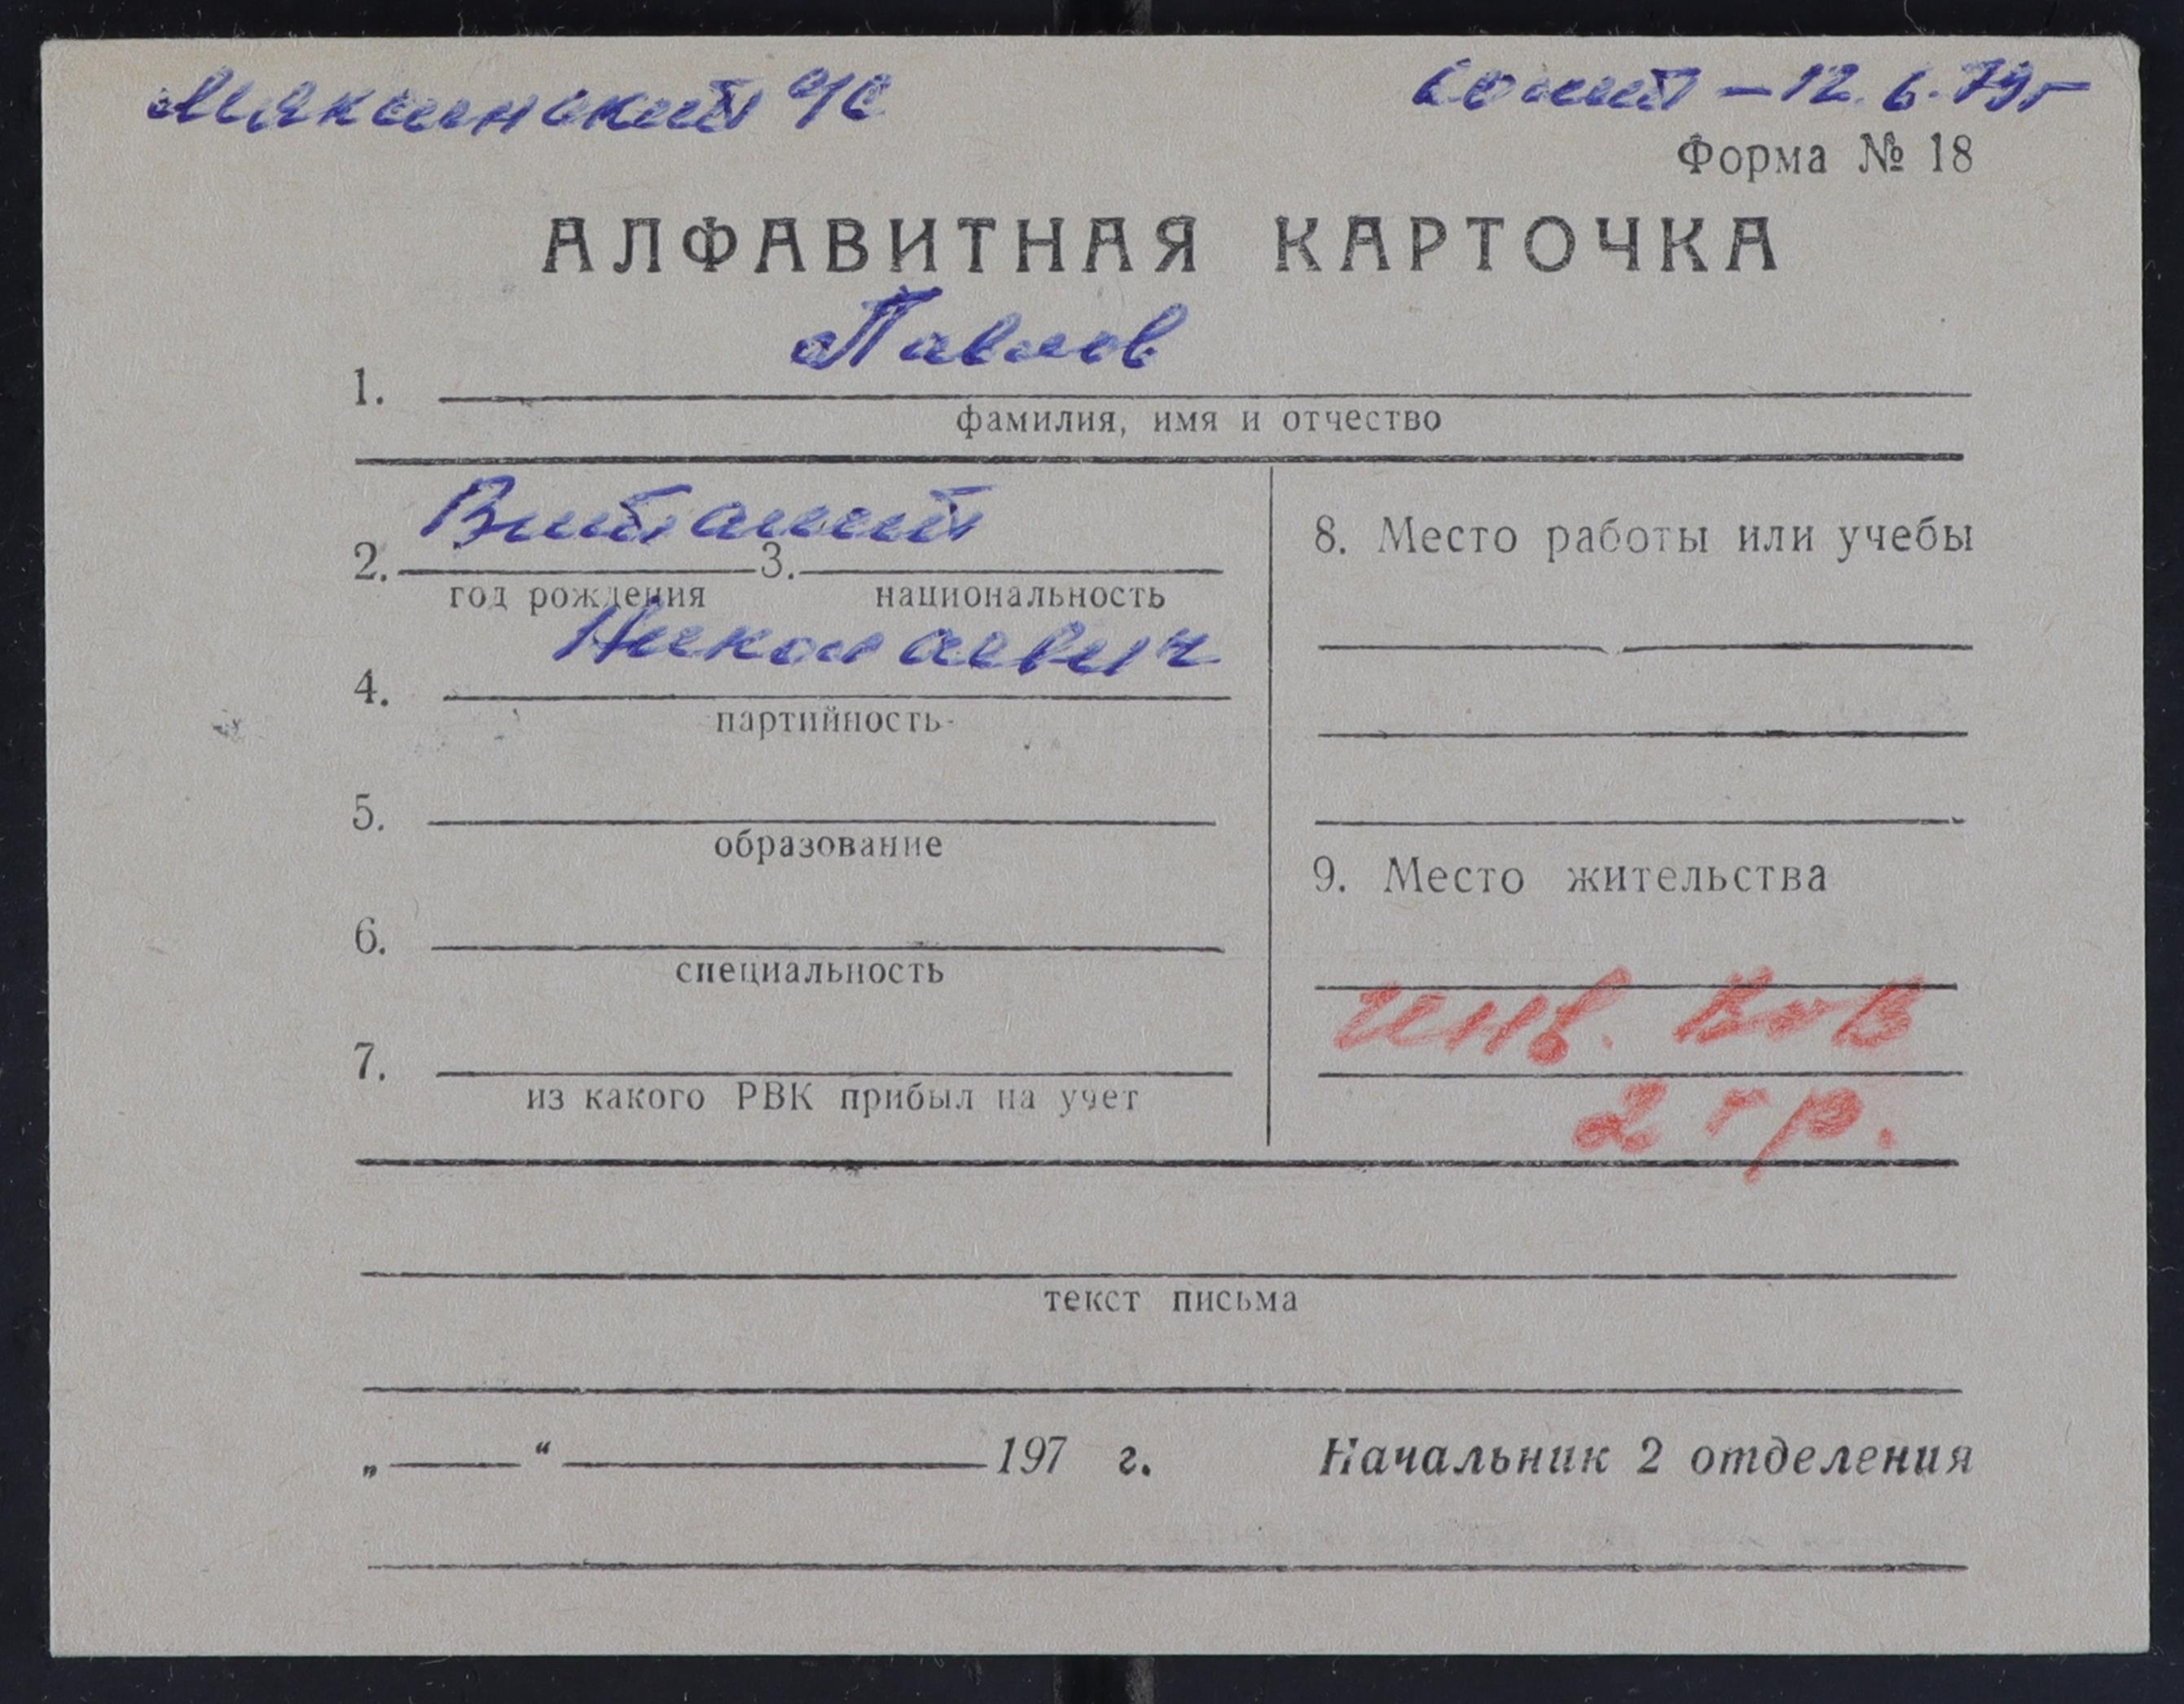 Мяксинский с/с
– 12.6.79г
Форма № 18
АЛФАВИТНАЯ КАРТОЧКА
Павлов
1.
фамилия, имя и отчество
Виталий
2. 3.
год рождения национальность
Николаевич
4.
партийность
5.
образование
6.
специальность
7.
из какого РВК прибыл на учет
8. Место работы или учебы
9. Место жительства
инв. ВоВ
2 гр.
текст письма
„ “ 197 г. Начальник 2 отделения